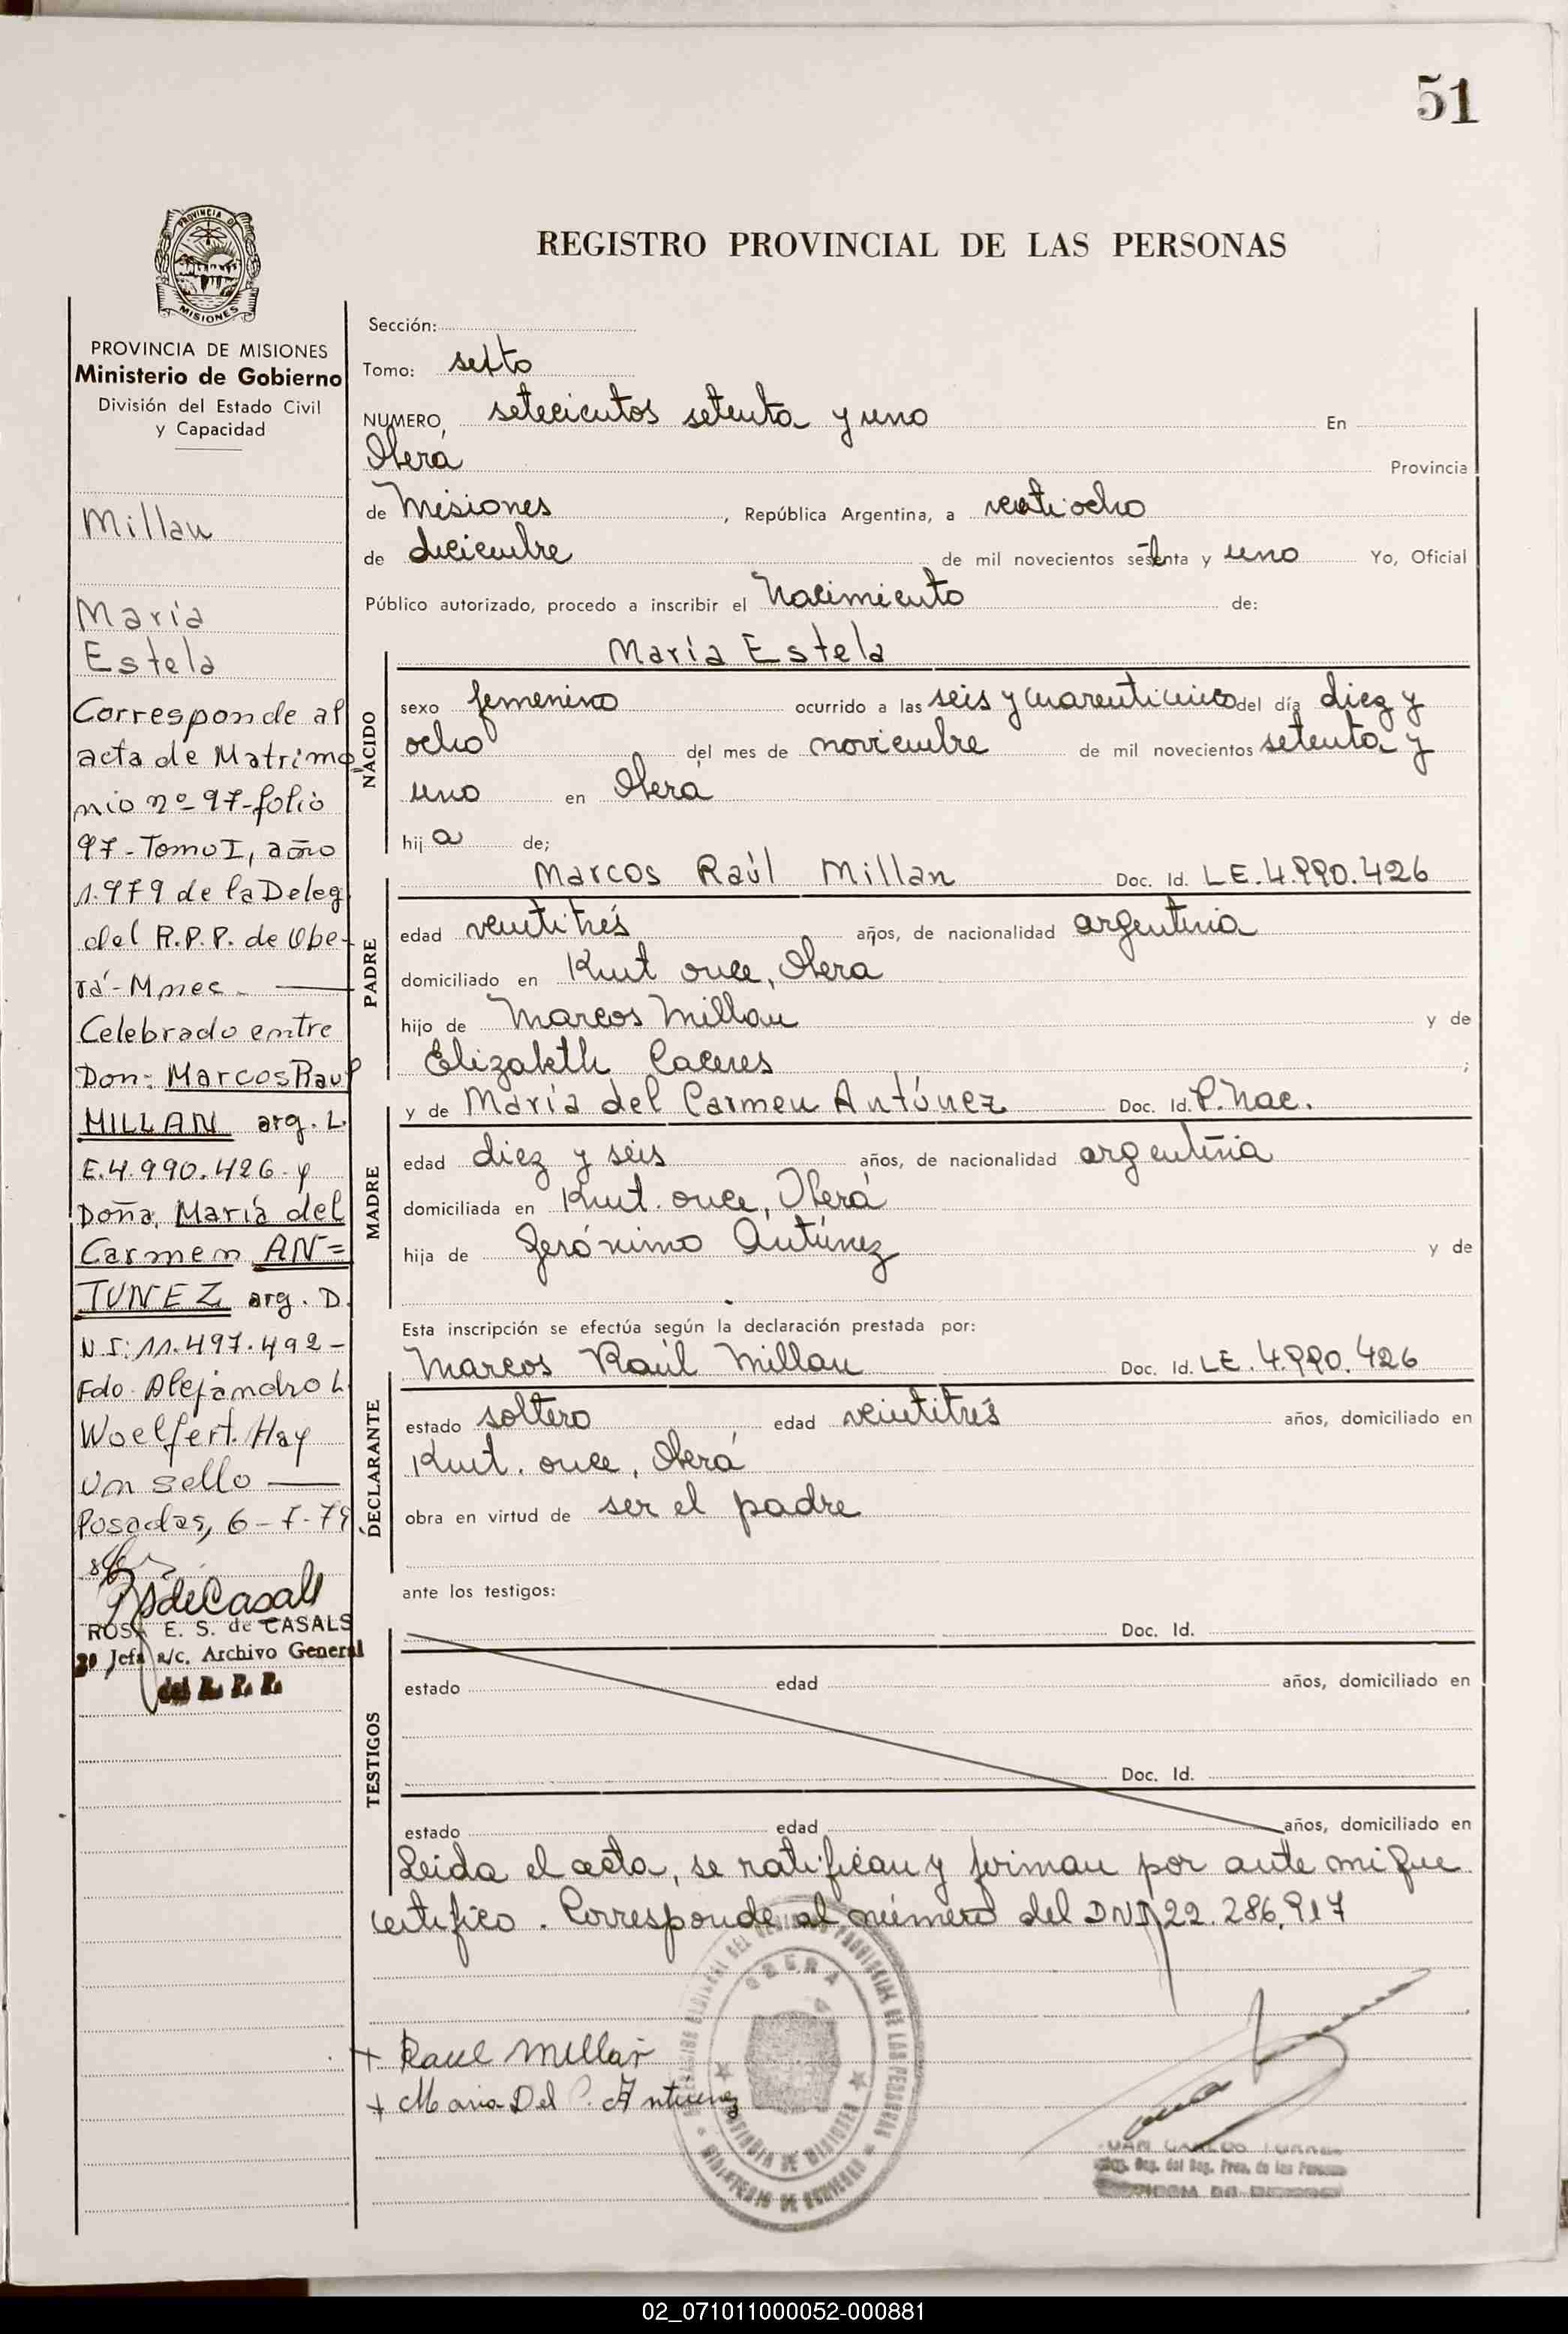 51
PROVINCIA DE
MISIONES
PROVINCIA DE MISIONES
Ministerio de Gobierno
División del Estado Civil
y Capacidad
Millan
María
Estela
Corresponde al
acta de Matrimo
nio nº 97-folio
97-Tomo I, año
1.979 de la Deleg
del R.P.P. de Obe-
rá-Mnes.
Celebrado entre
Don: Marcos Raul
MILLAN arg. L.
E.4.990.426 y
Doña, María del
Carmen AN=
TUNEZ arg. D.
N I: 11.497.492-
Fdo. Alejandro L.
Woelfert. Hay
un sello
Posadas, 6-7-79
ROSA E. S. de CASALS
Jefa a/c. Archivo General
del R. P. P.
REGISTRO PROVINCIAL DE LAS PERSONAS
Sección:
Tomo: sexto
NUMERO, setecientos setenta y uno En
Oberá Provincia
de Misiones, República Argentina, a veintiocho
de diciembre de mil novecientos setenta y uno Yo, Oficial
Público autorizado, procedo a inscribir el Nacimiento de:
NACIDO
María Estela
sexo femenino ocurrido a las seis y cuarenticinco del día diez y
ocho del mes de noviembre de mil novecientos setenta y
uno en Oberá
hija de;
PADRE
Marcos Raúl Millan Doc. Id. LE.4.990.426
edad veintitrés años, de nacionalidad argentina
domiciliado en Kmt once, Obera
hijo de Marcos Millan y de
Elizabeth Caceres ;
MADRE
y de María del Carmen Antúnez Doc. Id. P. Nac.
edad diez y seis años, de nacionalidad argentina
domiciliada en Kmt. once, Oberá
hija de Gerónimo Antúnez y de
Esta inscripción se efectúa según la declaración prestada por:
DECLARANTE
Marcos Raúl Millan Doc. Id. LE.4.990.426
estado soltero edad veintitrés años, domiciliado en
Kmt. once, Oberá
obra en virtud de ser el padre
ante los testigos:
TESTIGOS
Doc. Id.
estado edad años, domiciliado en
Doc. Id.
estado edad años, domiciliado en
Leida el acta, se ratifican y firman por ante mi que
certifico. Corresponde al número del DNI 22.286.917
OBERA
+ Raul Millan
+ Maria Del C. Antúnez
02_071011000052-000881